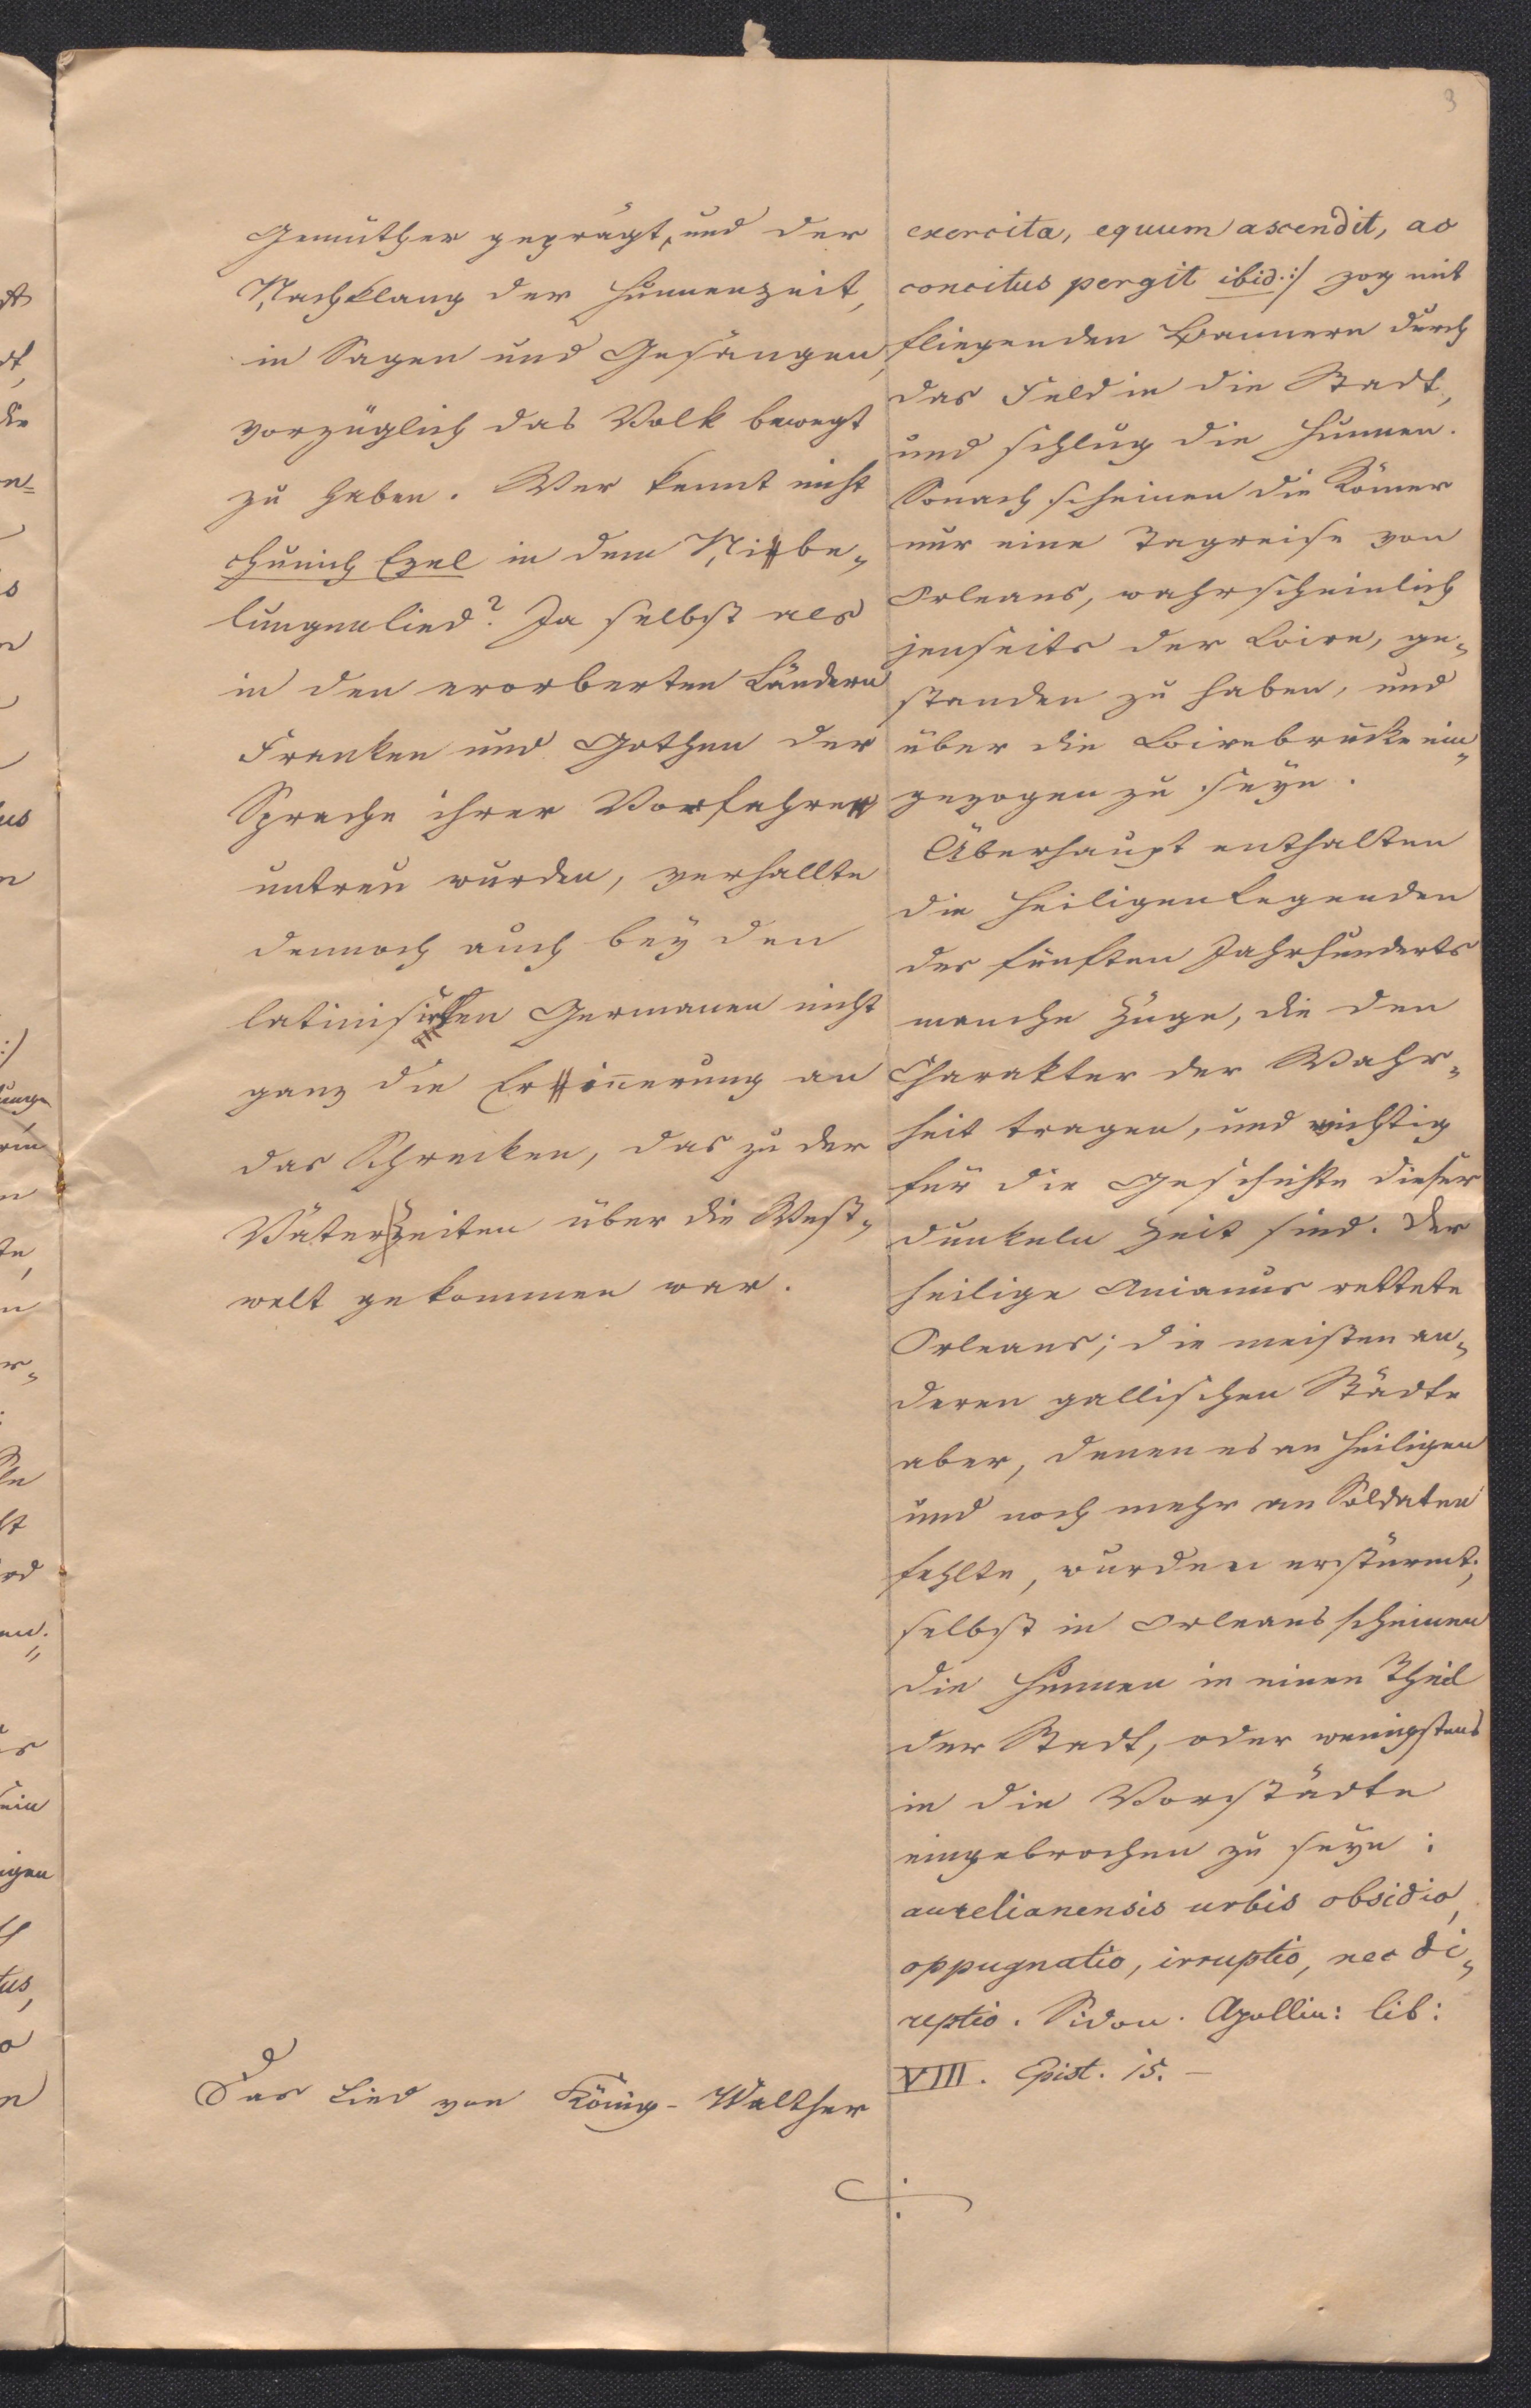 3
Gemüther geprägt, und der
Nachklang der Hunnenzeit,
in Sagen und Gesängen,
vorzüglich das Volk bewegt
zu haben. Wer kennt nicht
Chunich Ezel in dem Nibe„
lungenlied? Ja selbst als
in den erorberten Ländern
Franken und Gothen der
Sprache ihrer Vorfahren
untreu wurden, verhallte
dennoch auch beÿ den
latinisirten Germanen nicht
ganz die Erinnerung an
das Schrecken, das zu der
Väter Zeiten über die West„
welt gekommen war.
Das Lied von König-Walther
exercita, equum ascendit, ac
concitus pergit ibid:/ zog mit
fliegenden Bannern durch
das Feld in die Stadt,
und schlug die Hunnen.
Sonach scheinen die Römer
nur eine Tagreise von
Orleans, wahrscheinlich
jenseits der Loire, ge„
standen zu haben, und
über die Loirebrücke ein„
gezogen zu seÿn.
Überhaupt enthalten
die Heiligenlegenden
des fünften Jahrhunderts
manche Züge, die den
Charakter der Wahr„
heit tragen, und wichtig
für die Geschichte dieser
dunkeln Zeit sind. Der
heilige Anianus rettete
Orleans; die meisten an„
deren gallischen Städte
aber, denen es an Heiligen
und noch mehr an Soldaten
fehlte, wurden erstürmt;
selbst in Orleans scheinen
die Hunnen in einen Theil
der Stadt, oder wenigstens
in die Vorstädte
eingebrochen zu seÿn:
aurelianensis urbis obsidio,
oppugnatio, irruptio, nec di„
reptio. Sidon. Apollin: lib:
VIII. Epist. 15. –